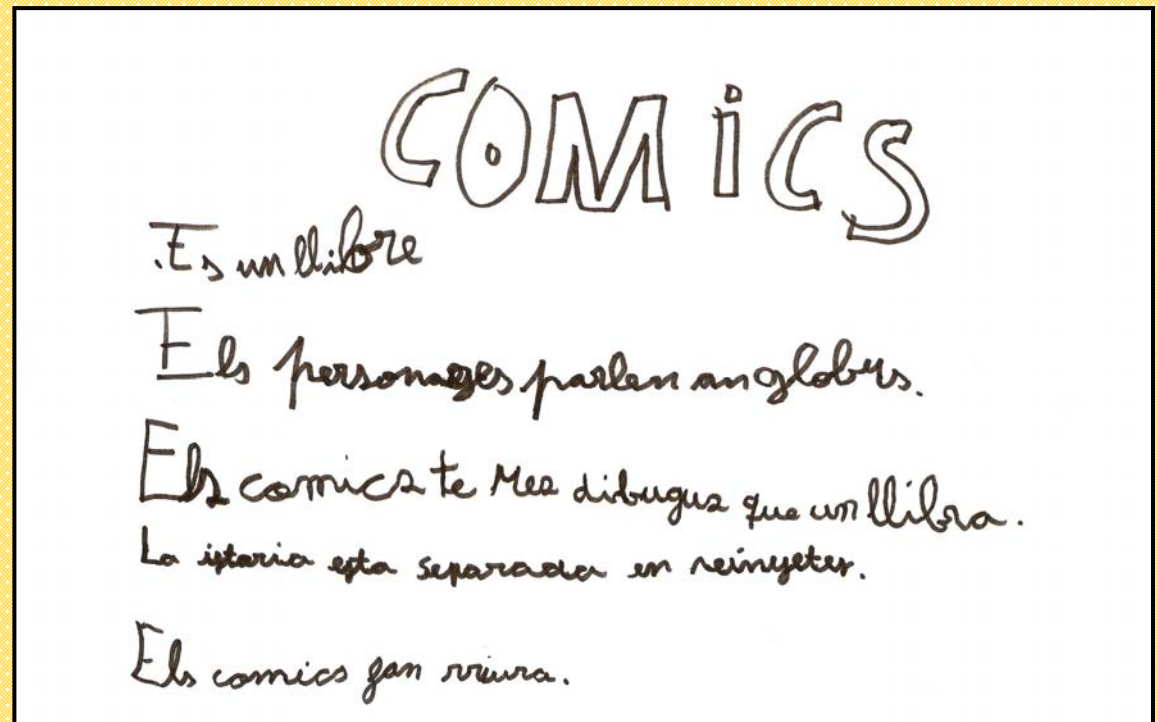 COMiCS
.Es un llibre
Els personages parlen an globus.
Els comics te Mes dibugus que un llibra.
La istoria esta separada en
Els comics fan rriura.